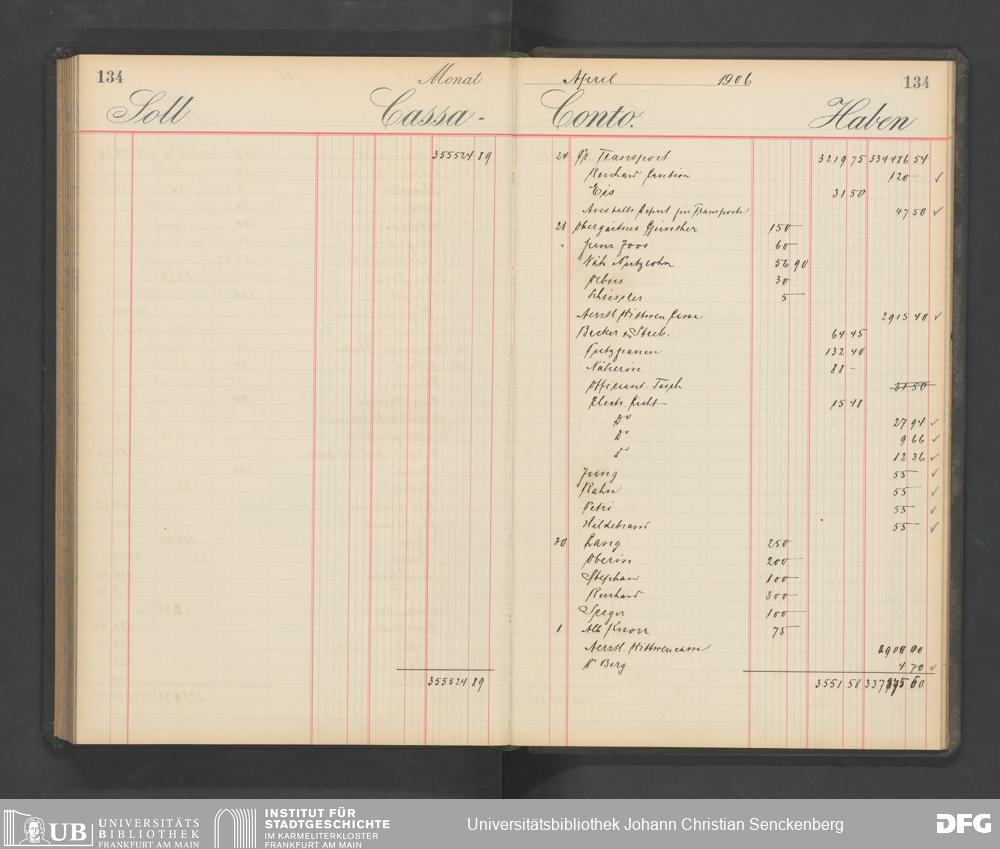 134 Monat
Soll Cassa-
355524 89
355524 89
April 1906 134
Conto. Haben
24 Pr. Transport 3219 75 334486 54
Reichard Caution 120 -
Eis 31 50
Transporte 47 50
28 Obergärtner Günther 150 -
" Joos 60 -
Näh Putzlohn 56 90
30 -
5 -
Aerztl Wittwen Casse 2915 40
Becker & Steeb. 64 45
Putzfrauen 132 40
Näherin 88 -
Officiant. Tisch 31 50
Electr. Licht 15 48
Do 27 94
Do 9 66
Do 12 36
Jung 55 -
Kahn 55 -
Petri 55 -
Hildebrand 55 -
30 Lang 250 -
Oberin 200 -
Stephan 100 -
Reichard 300 -
100 -
1 Alb Knorr 75 -
Aerztl. Wittwencasse
Berg 4 70
3551 58
UB UNIVERSITÄTS
BIBLIOTHEK
FRANKFURT AM MAIN
INSTITUT FÜR
STADTGESCHICHTE
IM KARMELITERKLOSTER
FRANKFURT AM MAIN
Universitätsbibliothek Johann Christian Senckenberg
DFG